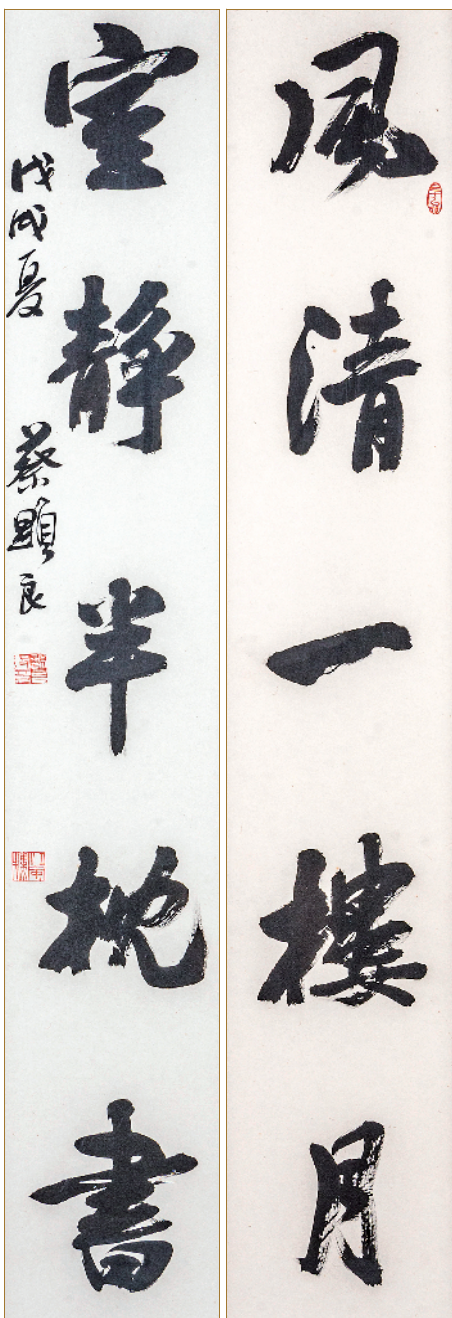 風清一樓月
室靜半枕書
戊戌夏 蔡顯良